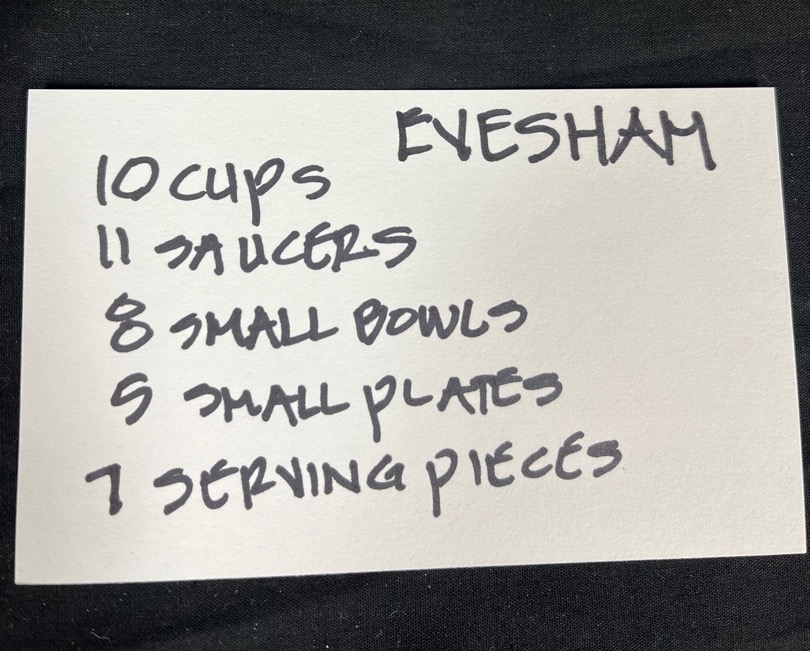 EVESHAM
10 cups
11 SAUCERS
8 SMALL BOWLS
5 SMALL PLATES
7 SERVING PIECES